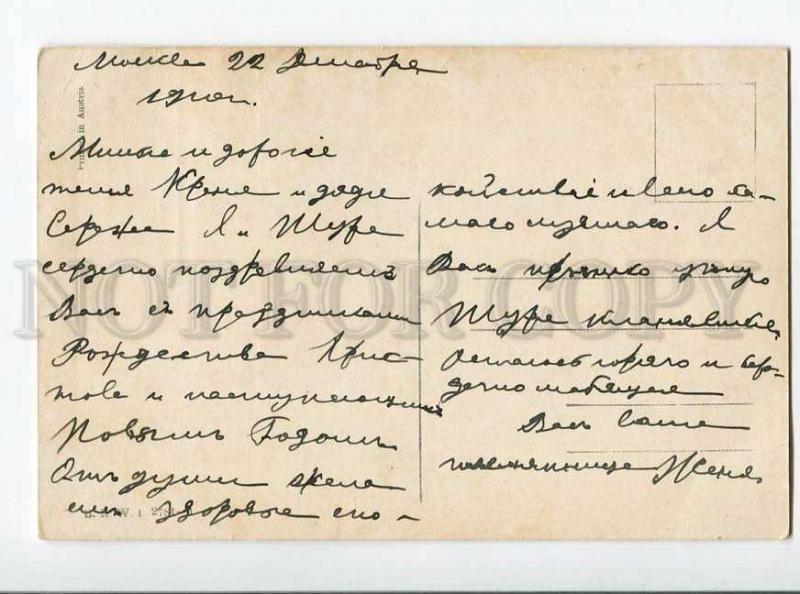 Москва 22 Декабря
1910 г.
Printed in Austria
Милые и дорогіе
тетя Женя и дядя
Сережа Я и Шура
сердечно поздравляемъ
Васъ съ праздникомъ
Рождества Хрис-
това и наступающимъ
Новымъ Годомъ
Отъ души жела
емъ здоровье спо-
койствіе и всего са-
маго лучшаго. Я
Васъ крѣпко цѣлую
Шура кланяется,
остаюсь горячо и сер-
дечно любящая
Васъ Ваша
племянница Женя.
NOT FOR COPY